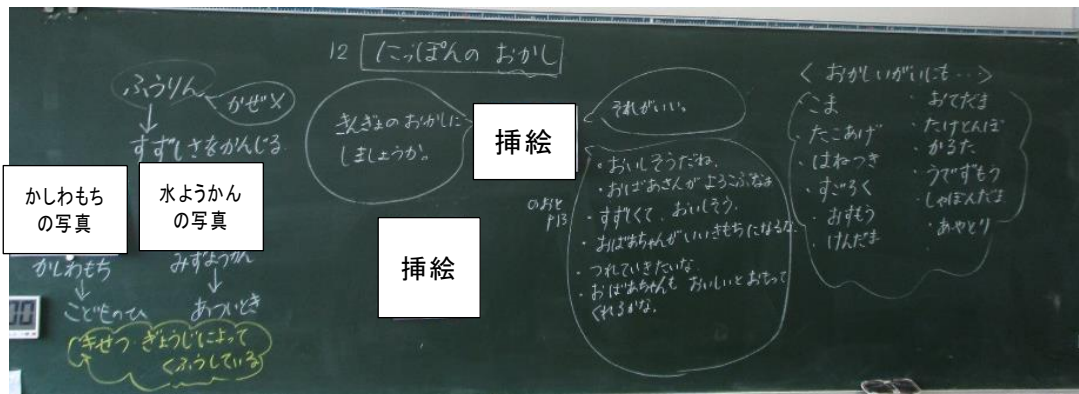 12 にっぽんの おかし
ふうりん
かぜ×
すずしさをかんじる
かしわもち
の写真
水ようかん
の写真
かしわもち
↓
こどものひ
みずようかん
↓
あついとき
きせつ・ぎょうじによって
くふうしている
きんぎょの おかしに
しましょうか。
挿絵
挿絵
それがいい。
のおと
P13
・おいしそうだね。
・おばあさんが よろこぶなぁ
・すずしくて、おいしそう。
・おばあちゃんがいいきもちになるな。
・つれていきたいな
・おばあちゃんも おいしいと おもって
くれるかな。
＜ おかしいがいにも…＞
・こま
・たこあげ
・はねつき
・すごろく
・おすもう
・けんだま
・おてだま
・たけとんぼ
・かるた
・うでずもう
・しゃぼんだま
・あやとり